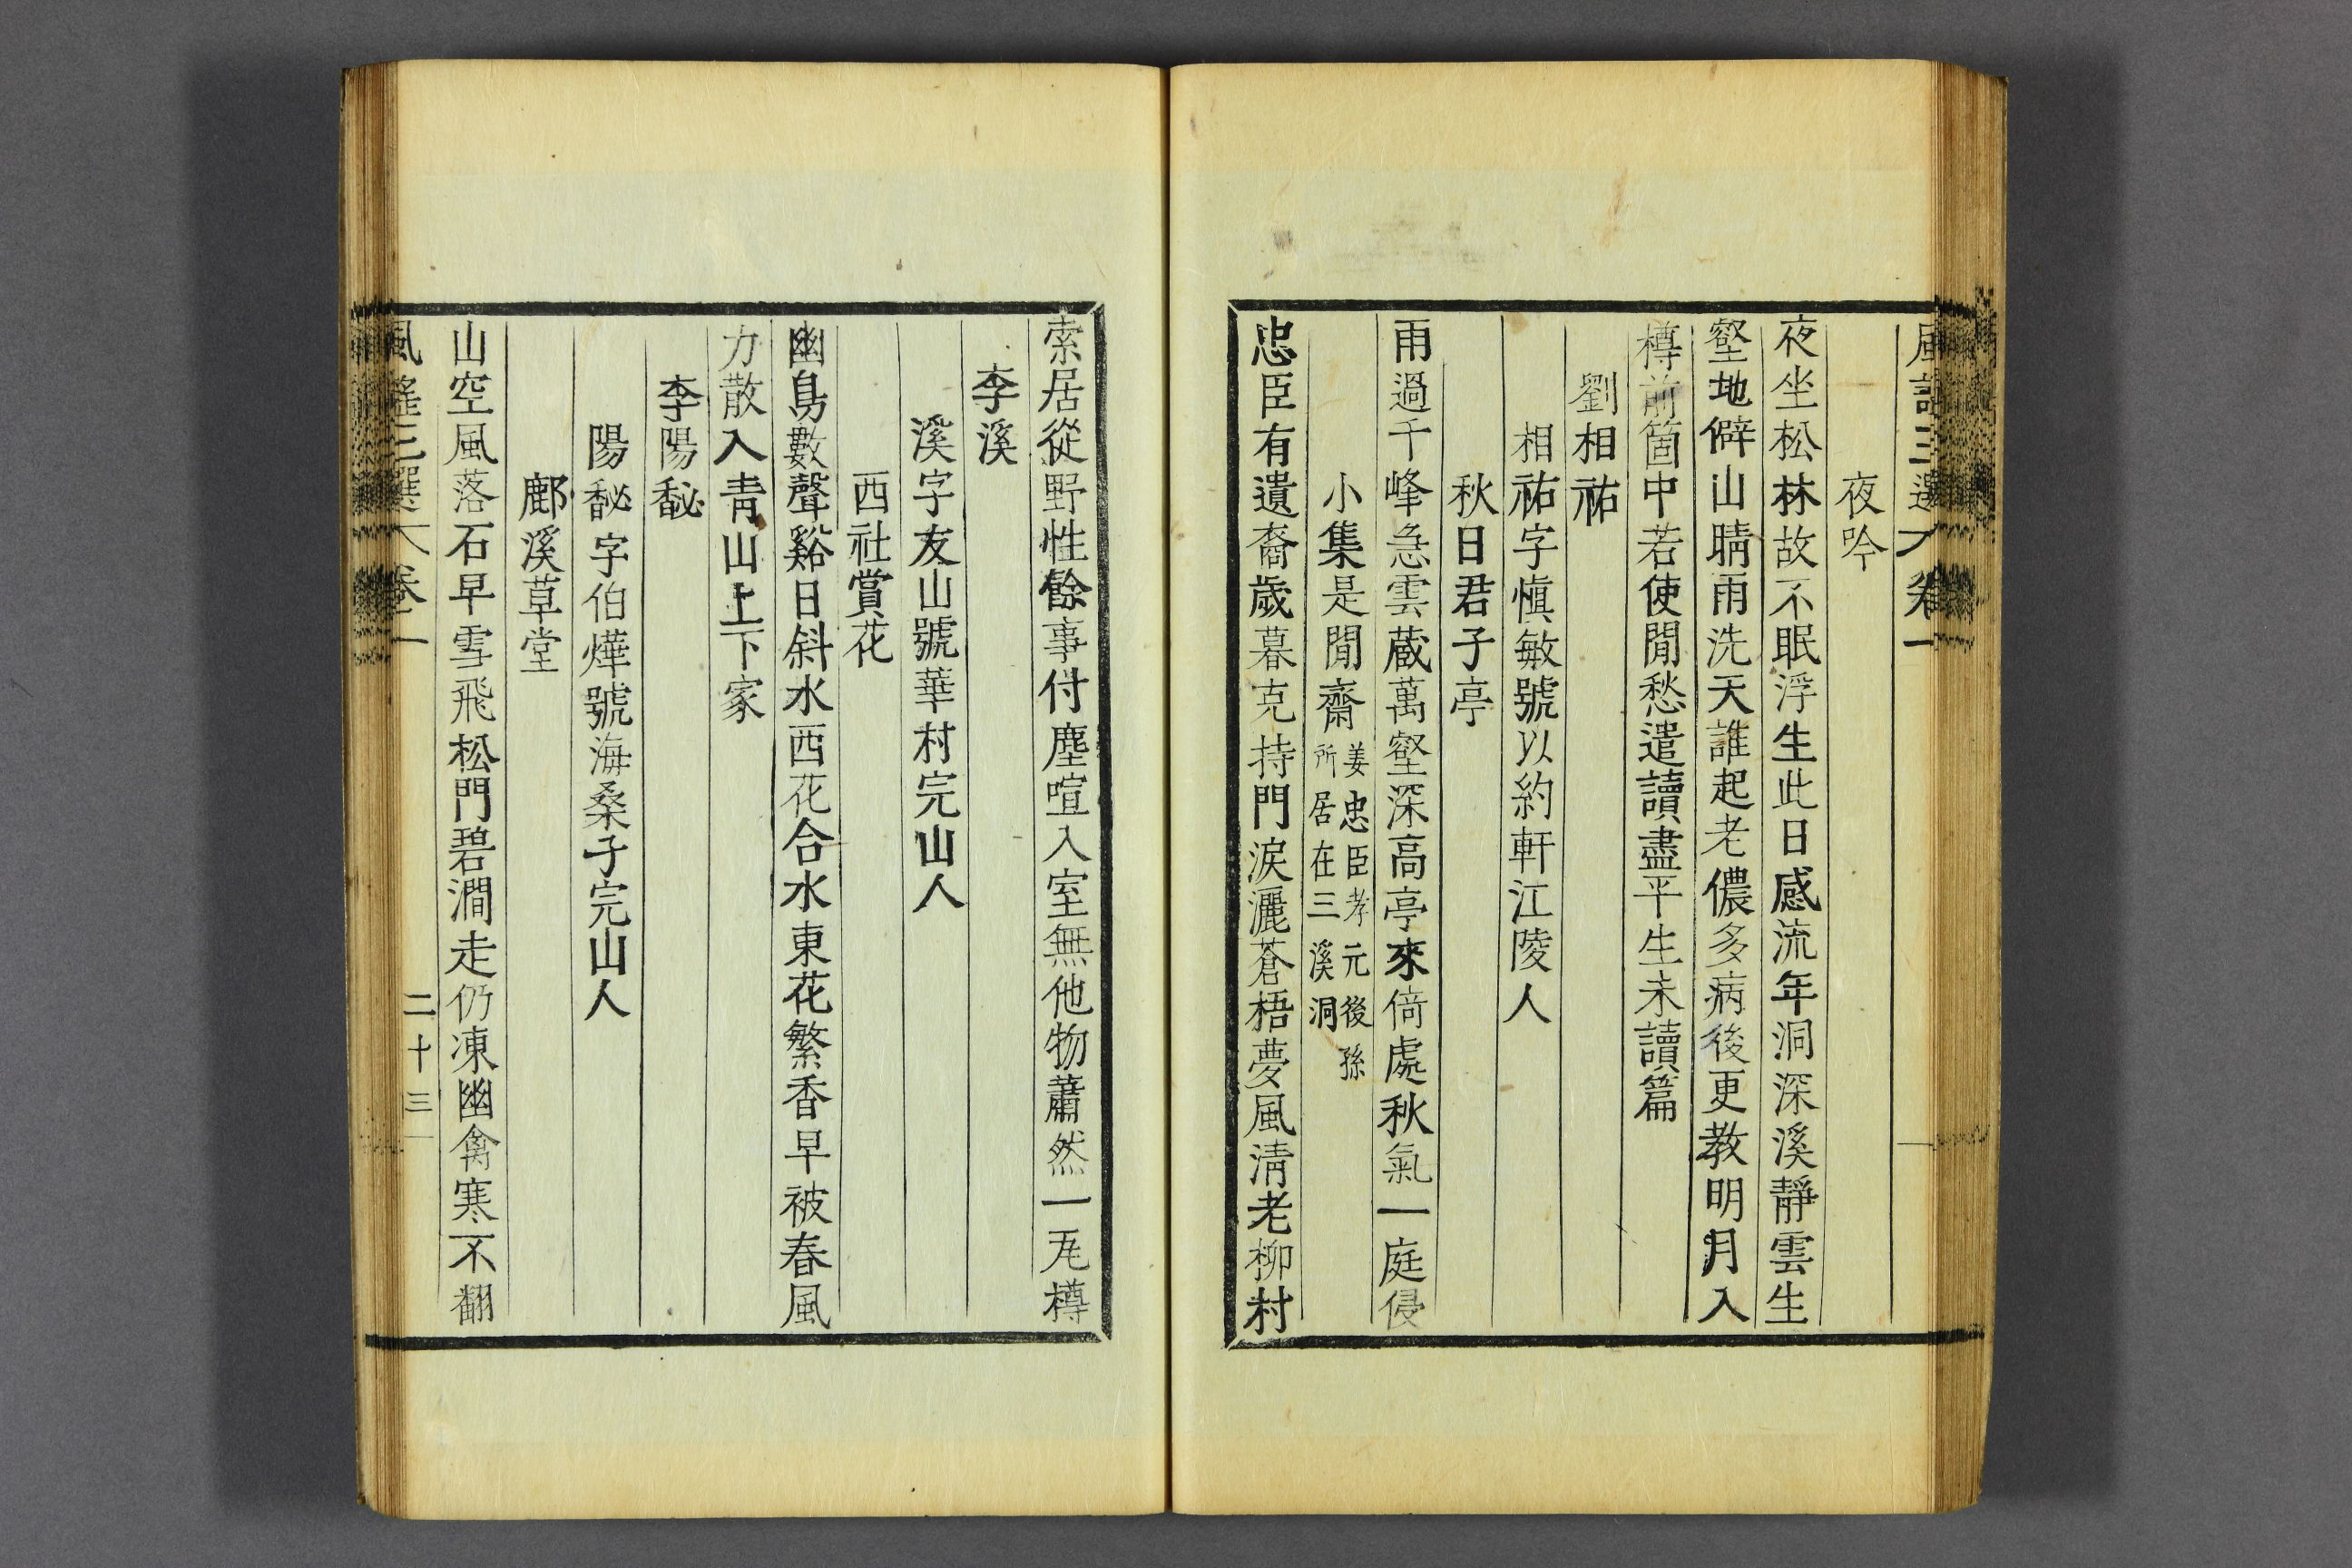 風謠三選 卷一
夜吟
夜坐松林故不眠浮生此日感流年洞深溪靜雲生
壑地僻山晴雨洗天誰起老儂多病後更教明月入
樽前箇中若使閒愁遣讀盡平生未讀篇
劉相祐
相祐字愼敏號以約軒江陵人
秋日君子亭
雨過千峰急雲藏萬壑深高亭來倚處秋氣一庭侵
小集是閒齋姜忠臣孝元後孫
所居在三溪洞
忠臣有遺裔歲暮克持門淚灑蒼梧夢風淸老柳村
索居從野性餘事付塵喧入室無他物蕭然一瓦樽
李溪
溪字友山號華村完山人
西社賞花
幽鳥數聲谿日斜水西花合水東花繁香早被春風
力散入靑山上下家
李陽馝
陽馝字伯燁號海桑子完山人
鄜溪草堂
山空風落石早雪飛松門碧澗走仍凍幽禽寒不翻
風謠三選 卷一 二十三